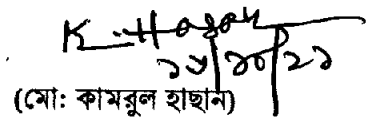 K. Hasan
২৮/১০/২১
(মো: কামরুল হাছান)